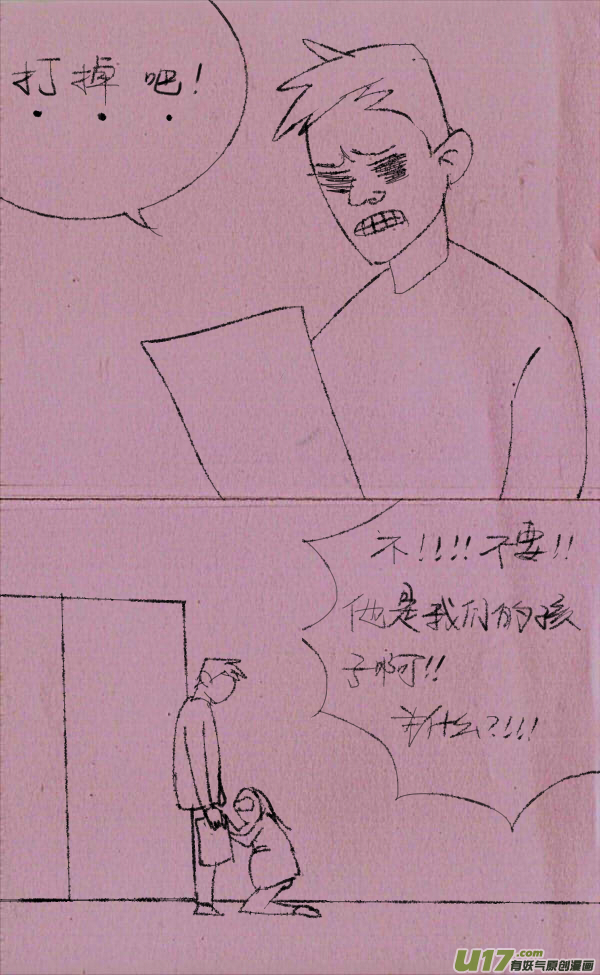 打掉吧!
不!!!!不要!!
他是我们的孩
子啊!!
为什么?!!!
U17.com
有妖气原创漫画